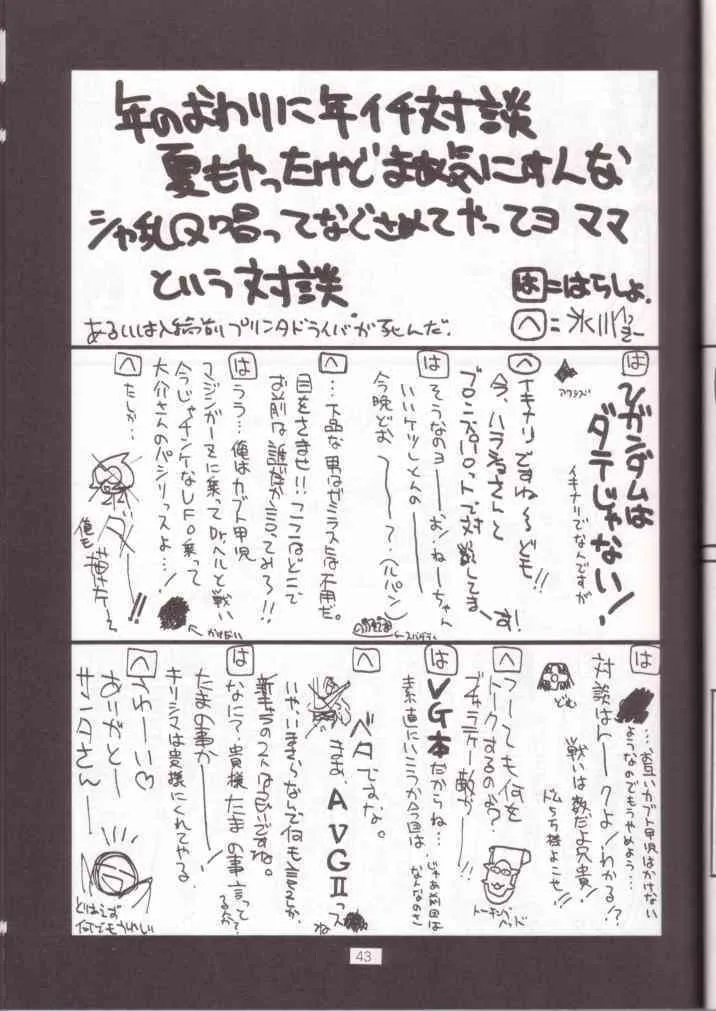 年のおわりに年イチ対談
夏もやったけどまぁ気にすんな
シャ乱Q唱ってなぐさめてやってヨ ママ
という対談
は=はらしょ.
へ=氷川
あるいは入稿前プリンタドライバが死んだ.
は
Vガンダムは
ダテじゃない!
イキナリでなんですが
アクシズ
へ
イキナリですね〜ども!!
今、ハラショーさんと
ブロンズパロットで対談してまーす!
は
そうなのヨーーお!ねーちゃん
いいケツしとんのー
今晩どお〜?(ルパン)
へ
…下品な男はゼミラストには不用だ。
目をさませ!!ここはどこで
お前は誰だか言ってみろ!!
は
うう…俺はカブト甲児
マジンガーZに乗ってDr.ヘルと戦い
今じゃチンケなUFO乗って
大介さんのパシリっスよ…!
へ
たしか…
ダーー!!
俺も
かけない
は
…お互いカブト甲児はかけない
ようなのでもうやめよう…
対談はトークよ!わかる!?
戦いは数だよ兄貴!
ドムもち様よこせ!!
ども
へ
つーても何を
トークするのよ?
ブチャラティー敵が!!
トーキングヘッド
は
VG本だからね…
素直にいこうか今回は
じゃあ前回は
なんなのさ
へ
ベタですな。
まま、AVGⅡっスね
いやいまさらなんで何も言えんが、
新キャラのフトは良いですね。
は
なにィ?貴様たまの事言ってるのか
たまの事かーー!
キリシマは貴様にくれてやる
へ
うわーい♡
ありがとー
サンタさんーー
とりあえず
何でもうれしい
43